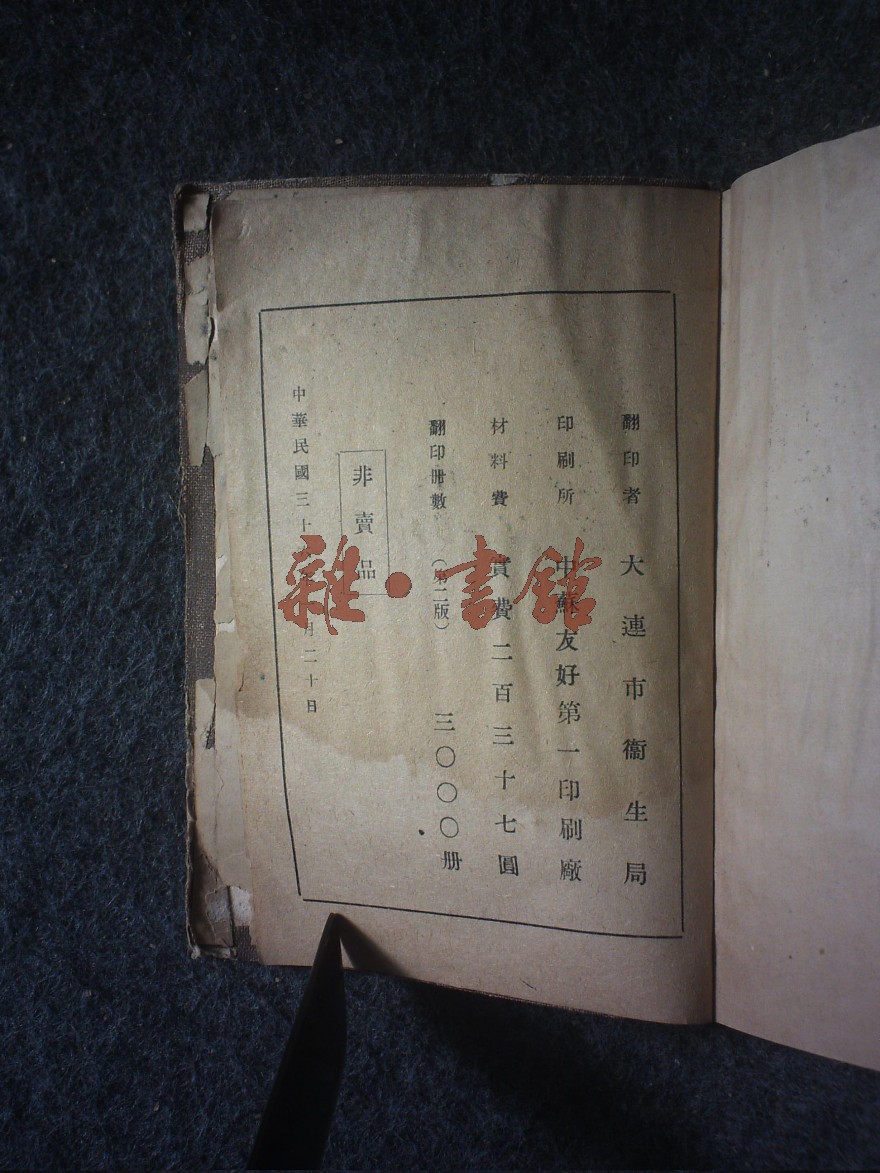 翻印者 大連市衞生局
印刷所 中蘇友好第一印刷廠
材料費 實費二百三十七圓
翻印冊數 (第二版) 三〇〇〇册
非賣品
中華民國三十 月二十日
雜·書館